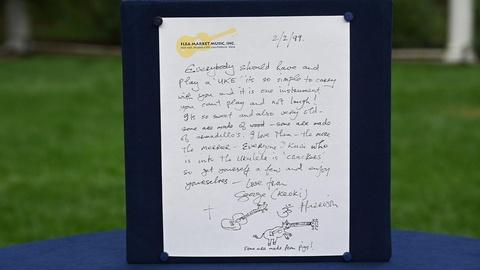 FLEA MARKET MUSIC, INC.
2/2/99.
Everybody should have and
play a 'UKE' its so simple to carry
with you and it is one instrument
you can't play and not laugh!
Its so sweet and also very old-
some are made of wood - some are made
of armadillo's. I love them - the more
the merrier - Everyone I know who
is into the ukulele is 'crackers'
so get yourself a few and enjoy
yourselves - Love from
George (Keoki)
Harrison
some are made from pigs!